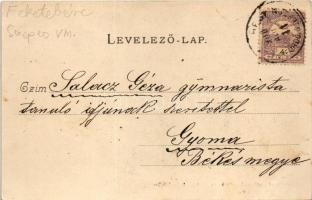 Feketebére
Szepes VM.
LEVELEZŐ-LAP.
Czim Salacz Géza gymnazista
tanuló ifjúnak szeretettel
Gyoma
Békésmegye